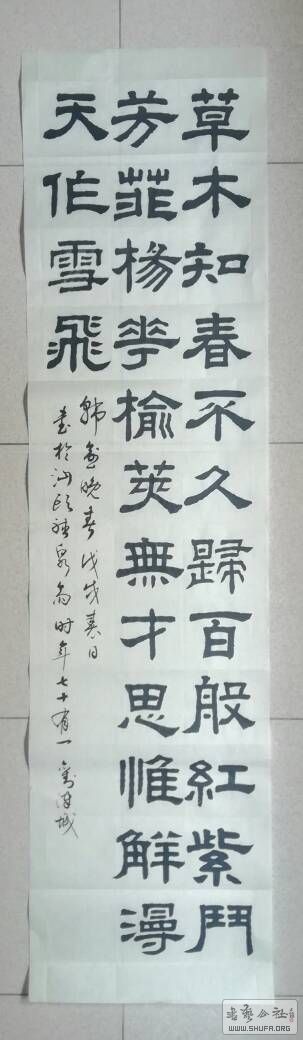 草木知春不久歸百般紅紫鬥
芳菲楊花榆莢無才思惟解漫
天作雪飛
韓愈晚春 戊戌春日
書於汕頭 泉 时年七十有一
书艺公社
WWW.SHUFA.ORG